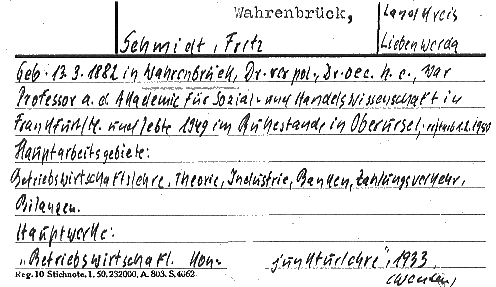 Wahrenbrück,
Landkreis
Schmidt, Fritz
Liebenwerda
Geb. 13.3.1882 in Wahrenbrück, Dr. rer pol., Dr. oec. h. c., war
Professor a. d. Akademie für Sozial- und Handelswissenschaft in
Frankfurt/M. und lebte 1949 im Ruhestande in Oberursel, 1.2.1950
Hauptarbeitsgebiete:
Betriebswirtschaftslehre, Theorie, Industrie, Banken, Zahlungsverkehr,
Bilanzen.
Hauptwerke:
„Betriebswirtschaftl. Kon- junkturlehre", 1933
Reg. 10 Stichnote, 1. 50, 232000, A. 803, S. 4062.
(Wenden)